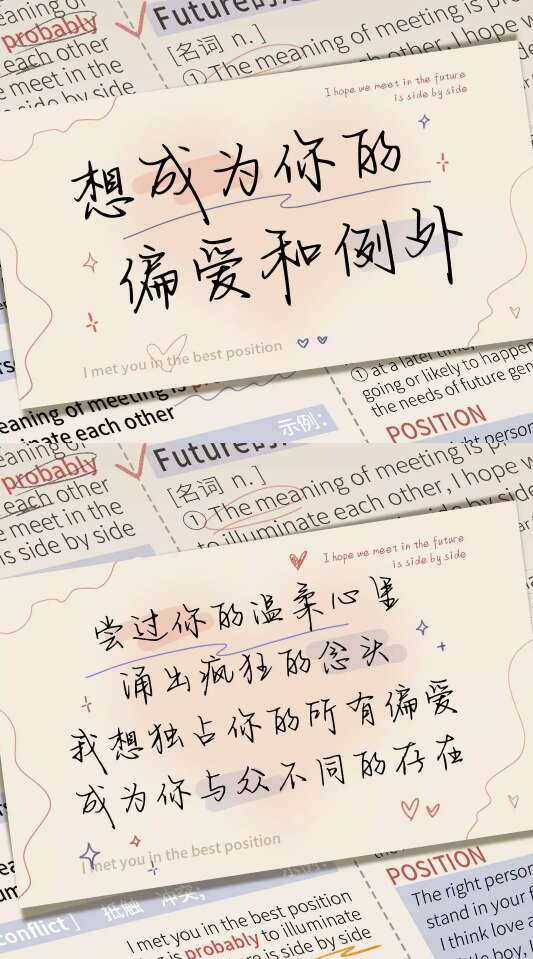 eaning of
probably
each other
e meet in the
side by side
Future
[名词 n.]
① The meaning of meeting is
each other, I hope
I hope we meet in the future
is side by side
想成为你的
偏爱和例外
I met you in the best position
eaning of meeting is
inate each other
示例:
① at a later time,
going or likely to happen
the needs of future gen
POSITION
eaning of
probably
each other
e meet in the
is side by side
Future
[名词 n.]
① The meaning of meeting is
to illuminate each other, I hope
I hope we meet in the future
is side by side
尝过你的温柔心里
涌出疯狂的念头
我想独占你的所有偏爱
成为你与众不同的存在
I met you in the best position
conflict] 抵触 冲突;
I met you in the best position
is probably to illuminate
is side by side
POSITION
The right person
stand in your f
I think love a